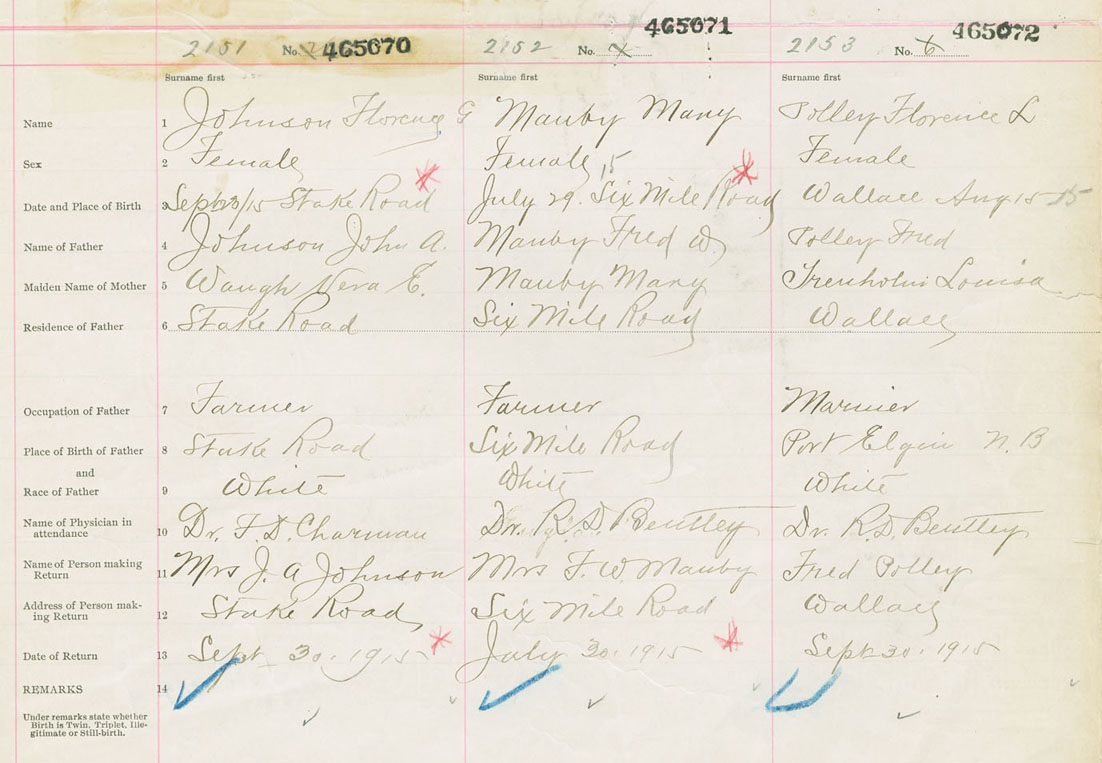 2151 No. 465070 2152 No. x 465071 2153 No. x 465072
Surname first Surname first Surname first
Name 1 Johnson Florence G Mauby Mary Polley Florence L
Sex 2 Female Female Female
Date and Place of Birth 3 Sept 23/15 Stake Road July 29. 15 Six Mile Road Wallace Aug 15 15
Name of Father 4 Johnson John A. Mauby Fred W. Polley Fred
Maiden Name of Mother 5 Waugh Vera E. Mauby Mary Trenholm Louisa
Residence of Father 6 Stake Road Six Mile Road Wallace
Occupation of Father 7 Farmer Farmer Marinier
Place of Birth of Father 8 Stake Road Six Mile Road Port Elgin N. B
and
Race of Father 9 White White White
Name of Physician in
attendance 10 Dr. F. D. Charman Dr. R. D. Bentley Dr. R. D. Bentley
Name of Person making
Return 11 Mrs J. A Johnson Mrs F. W. Mauby Fred Polley
Address of Person mak-
ing Return 12 Stake Road Six Mile Road Wallace
Date of Return 13 Sept 30. 1915 July 30. 1915 Sept 30. 1915
REMARKS 14
Under remarks state whether
Birth is Twin, Triplet, Ille-
gitimate or Still-birth.